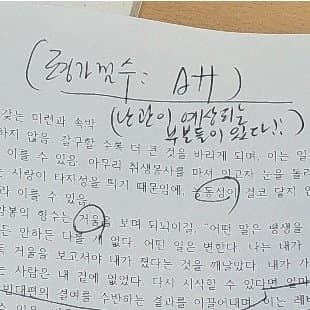 (평가점수: A++)
(난관이 예상되는
부분들이 있다!!)
갖는 미련과 속박
하지 않음. 갈구할 수록 더 큰 것을 바라게 되며, 이는 일
이룰 수 있음. 아무리 취생몽사를 마셔 잊고자 눈을 돌려
는 사랑이 타자성을 띄기 때문에, 능동성이 결코 닿지 안
라 이룰 수 있음
양봉의 형수는 거울을 보며 되뇌이길, "어떤 말은 평생을
든 안하든 나를 없다. 어떤 일은 변한다. 나는 내가
거울을 보고서야 내가 졌다는 것을 깨달았다. 내가 가
는 사람은 내 곁에 없었다. 다시 시작할 수 있다면 얼마
빈대편의 결여를 수반하는 결과를 이끌어내며, 이는 레비